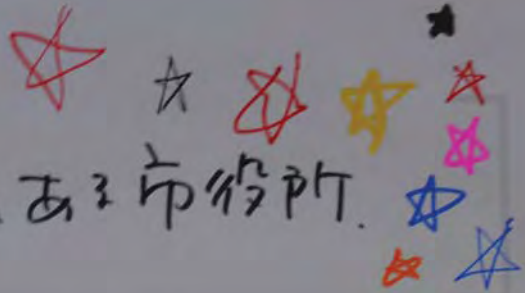 ある市役所.